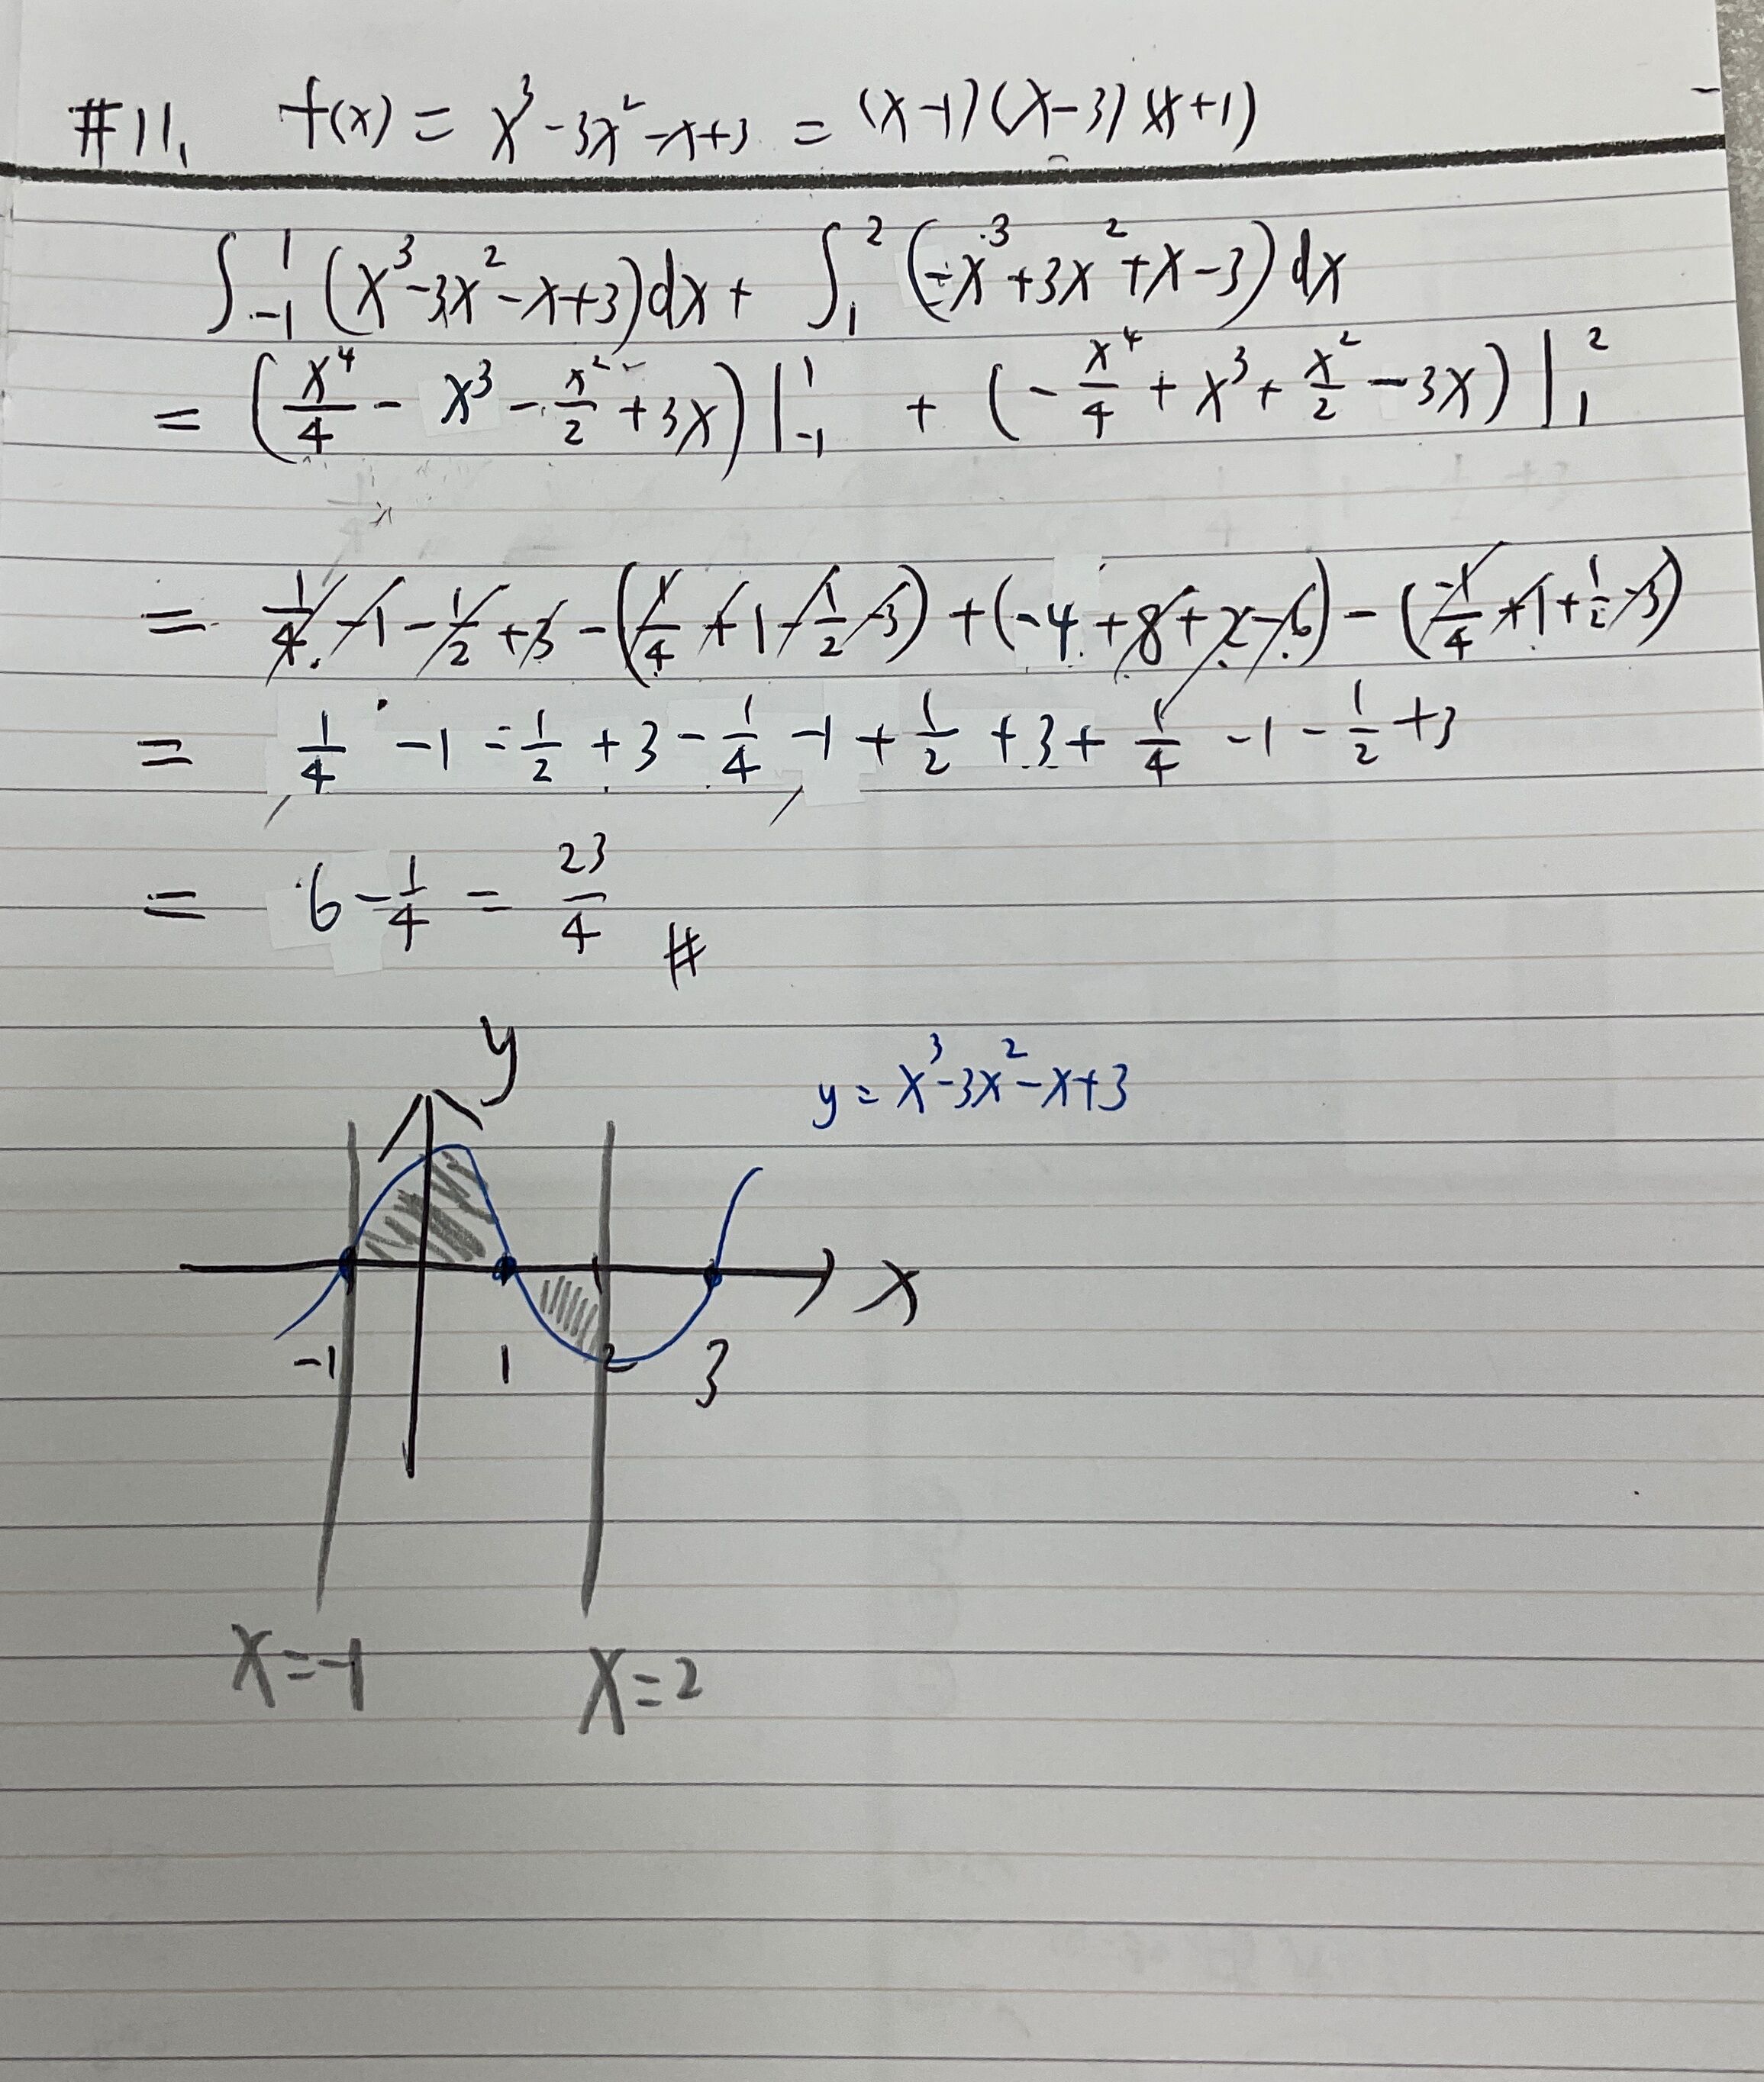 #11. f(x) = x³-3x²-x+3 = (x-1)(x-3)(x+1)
∫₋₁¹ (x³-3x²-x+3)dx + ∫₁² (-x³+3x²+x-3)dx
= (x⁴/4 - x³ - x²/2 + 3x)|₋₁¹ + (-x⁴/4 + x³ + x²/2 - 3x)|₁²
= 1/4 -1 - 1/2 +3 - (1/4 +1 - 1/2 -3) + (-4+8+2-6) - (-1/4 +1 + 1/2 -3)
= 1/4 -1 - 1/2 + 3 - 1/4 -1 + 1/2 +3 + 1/4 -1 - 1/2 +3
= 6 - 1/4 = 23/4 #
y
y = x³-3x²-x+3
x
-1 1 2 3
x=-1 x=2